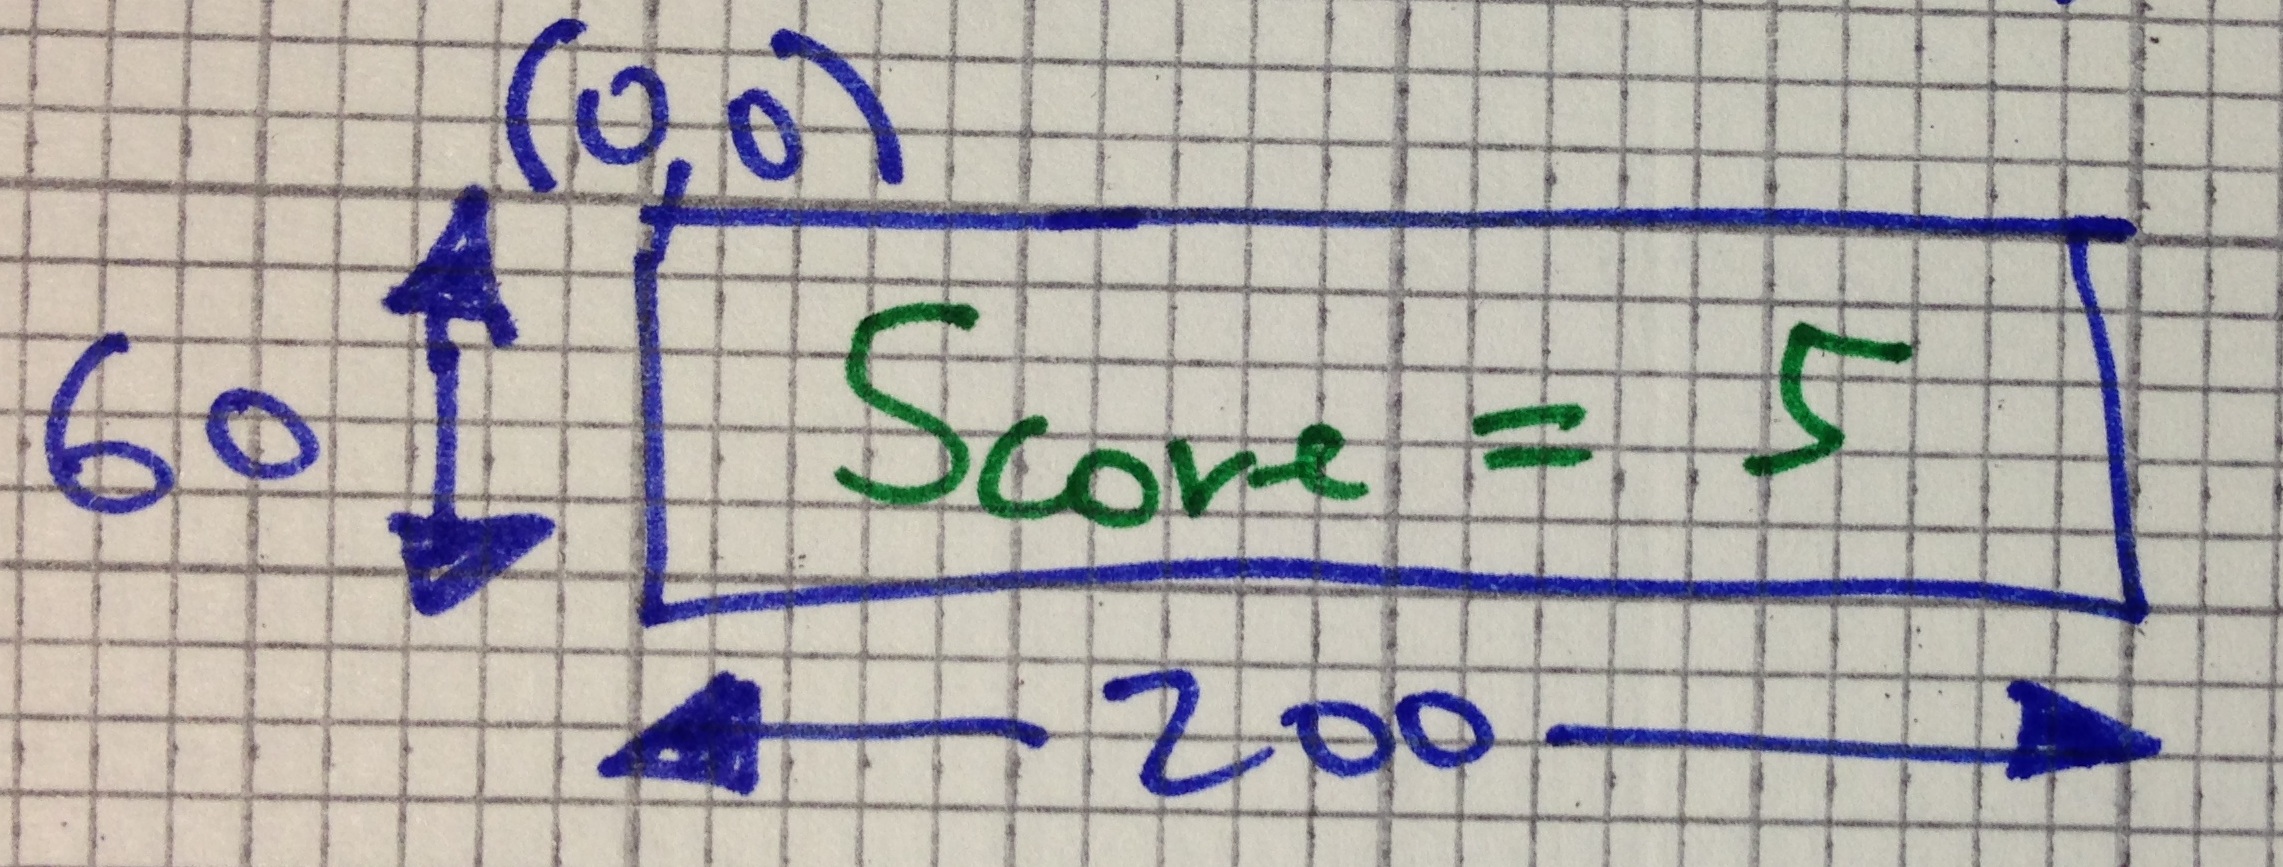 (0,0)
60
Score = 5
200